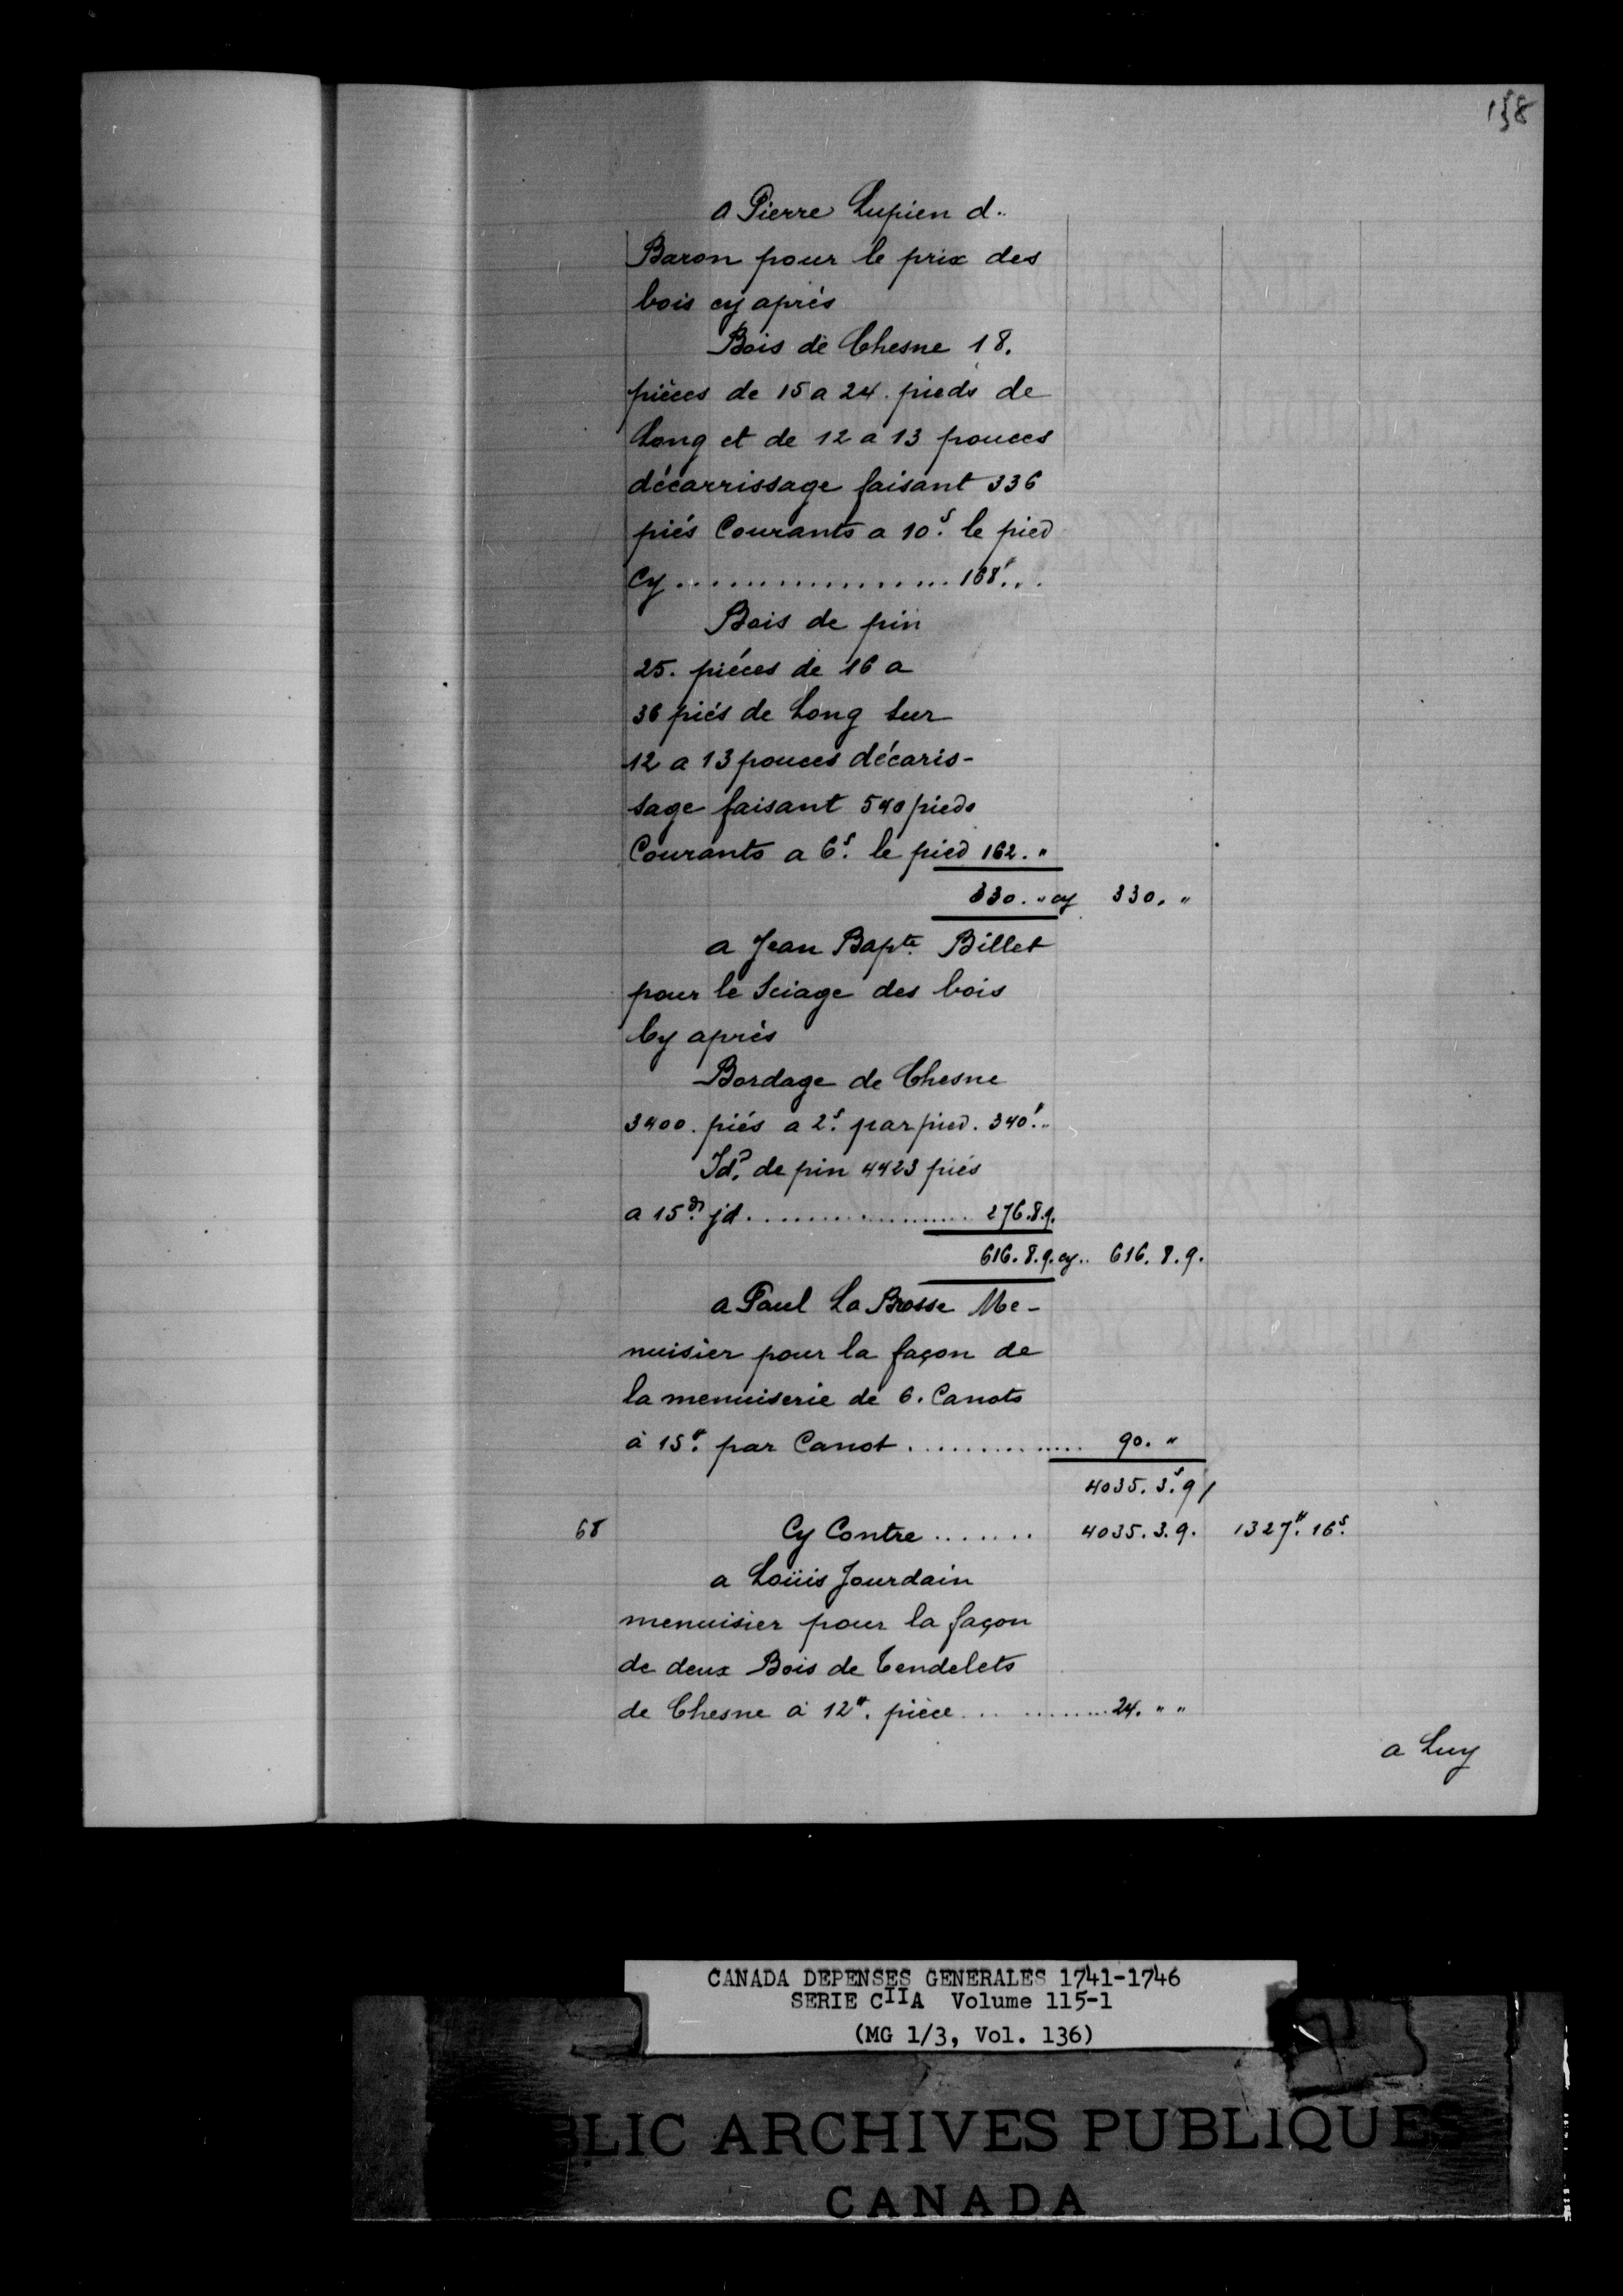 158
a Pierre Lupien d..
Baron pour le prix des
bois cy aprés
Bois de Chesne 18.
pièces de 15 a 24. pieds de
Long et de 12 a 13 pouces
décarrissage faisant 336
piés Courants a 10s. le pied
Cy .................... 168#..
Bois de pin
25. piéces de 16 a
36 piés de Long sur
12 a 13 pouces décaris-
sage faisant 540 pieds
Courants a 6s. le pied 162. "
330. " cy 330. "
a Jean Bapte. Billet
pour le Sciage des bois
Cy après
Bordage de Chesne
3400. piés a 2s. par pied. 340#..
Jd. de pin 4423 piés
a 15d. jd .................... 276.8.9.
616.8.9. cy.. 616.8.9.
a Paul La Brosse Me-
nuisier pour la façon de
la menuiserie de 6. Canots
à 15#. par Canot ............... 90. "
4035. 3s. 9/
68 Cy Contre ....... 4035.3.9. 1327#. 16s.
a Loüis Jourdain
menuisier pour la façon
de deux Bois de Tendelets
de Chesne à 12#. pièce ............ 24. " "
a Luy
CANADA DEPENSES GENERALES 1741-1746
SERIE CIIA Volume 115-1
(MG 1/3, Vol. 136)
BLIC ARCHIVES PUBLIQUES
CANADA